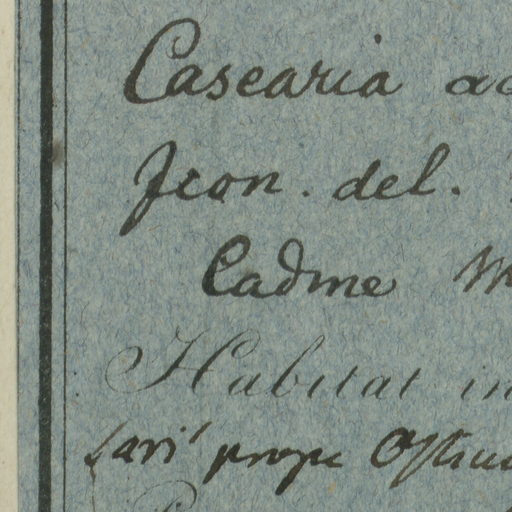 Casearia ac
Jcon. del.
Cadme M
Habitat in
prope Ostiu